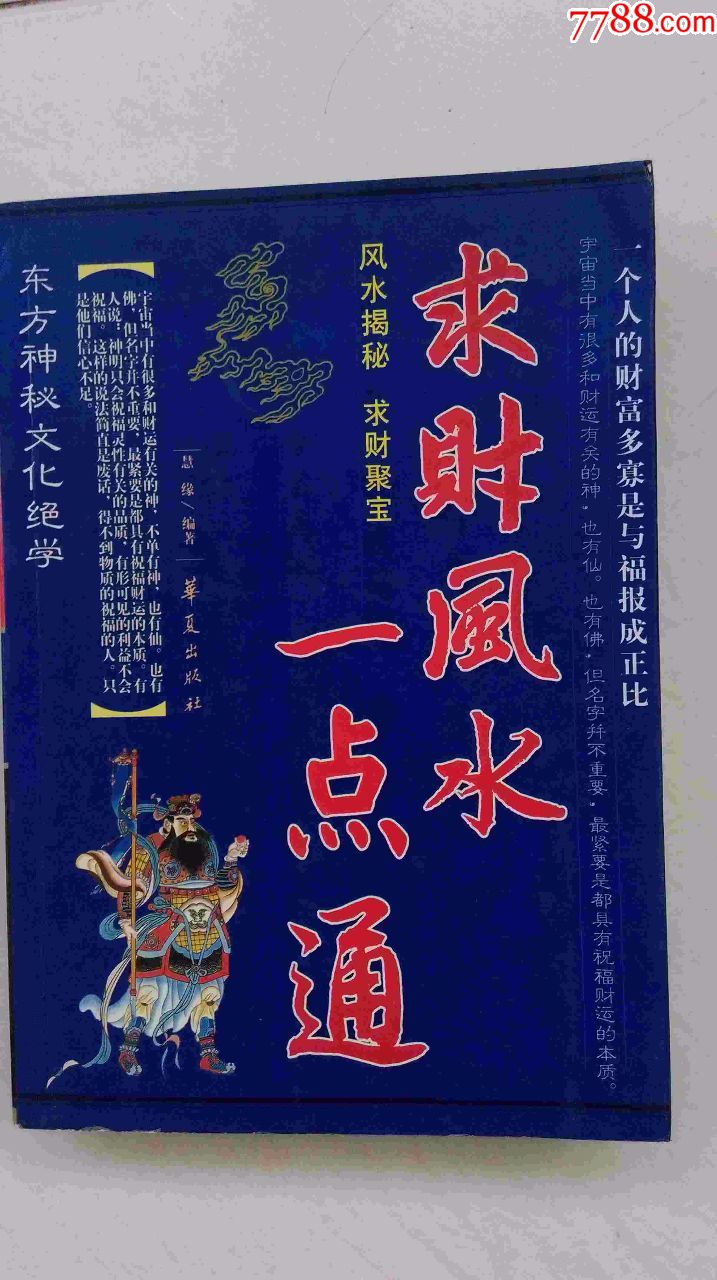 7788.com
一个人的财富多寡是与福报成正比
宇宙当中有很多和财运有关的神，也有仙。也有佛，但名字并不重要，最紧要是都具有祝福财运的本质。
求财風水
一点通
风水揭秘 求财聚宝
慧缘/编著
華夏出版社
【宇宙当中有很多和财运有关的神，不单有神，也有仙。也有
佛，但名字并不重要，最紧要是都具有祝福财运的本质。有
人说：神明只会祝福灵性有关的品质，有形可见的利益不会
祝福。这样的说法简直是废话，得不到物质的祝福的人。只
是他们信心不足。】
东方神秘文化绝学